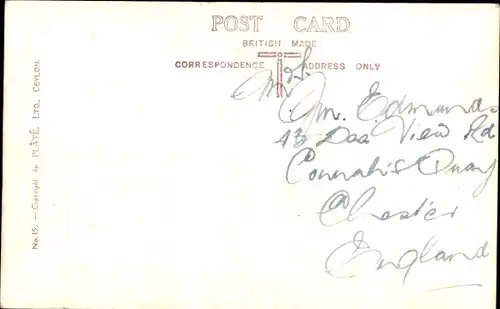 POST CARD
BRITISH MADE
CORRESPONDENCE ADDRESS ONLY
Edmunds
43 Dee View Rd
Connah's Quay
Chester
England
No.15. — Copyright by PLÂTÉ, LTD., CEYLON.